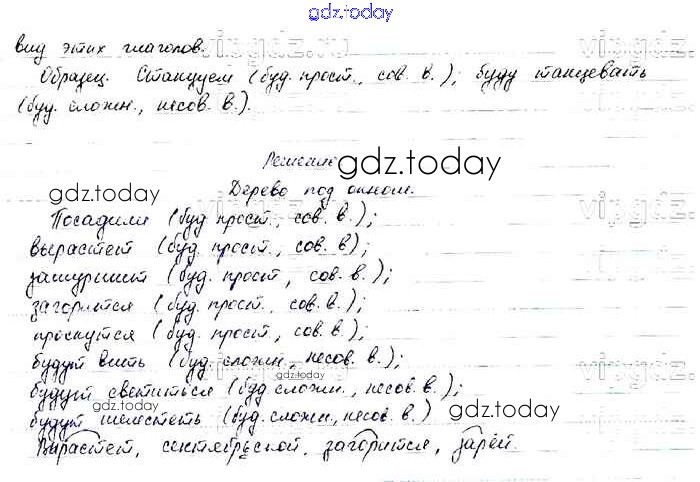 gdz.today
вид этих глаголов.
Образец. Станцуем (буд. прост., сов. в.); буду танцевать
(буд. сложн., несов. в.).
Решение
gdz.today
gdz.today
Дерево под окном.
Посадили (буд. прост., сов. в.);
вырастет (буд. прост., сов. в);
зашуршит (буд. прост, сов. в.);
загорится (буд. прост., сов. в.);
проснутся (буд. прост., сов. в.);
будут вить (буд. сложн., несов. в.);
gdz.today
будут светиться (буд сложн., несов. в.);
gdz.today
будут шелестеть (буд. сложн., несов. в.)
gdz.today
Вырастет, сентябрьской, загорится, зарёй.